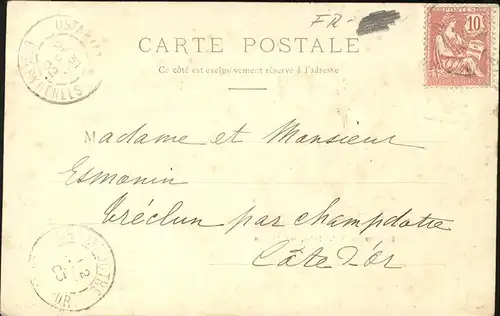 FR-
CARTE POSTALE
Ce côté est exclusivement réservé à l'adresse
POSTES
10
Madame et Monsieur
Esmonin
Tréclun par Champdotre
Côte d'Or